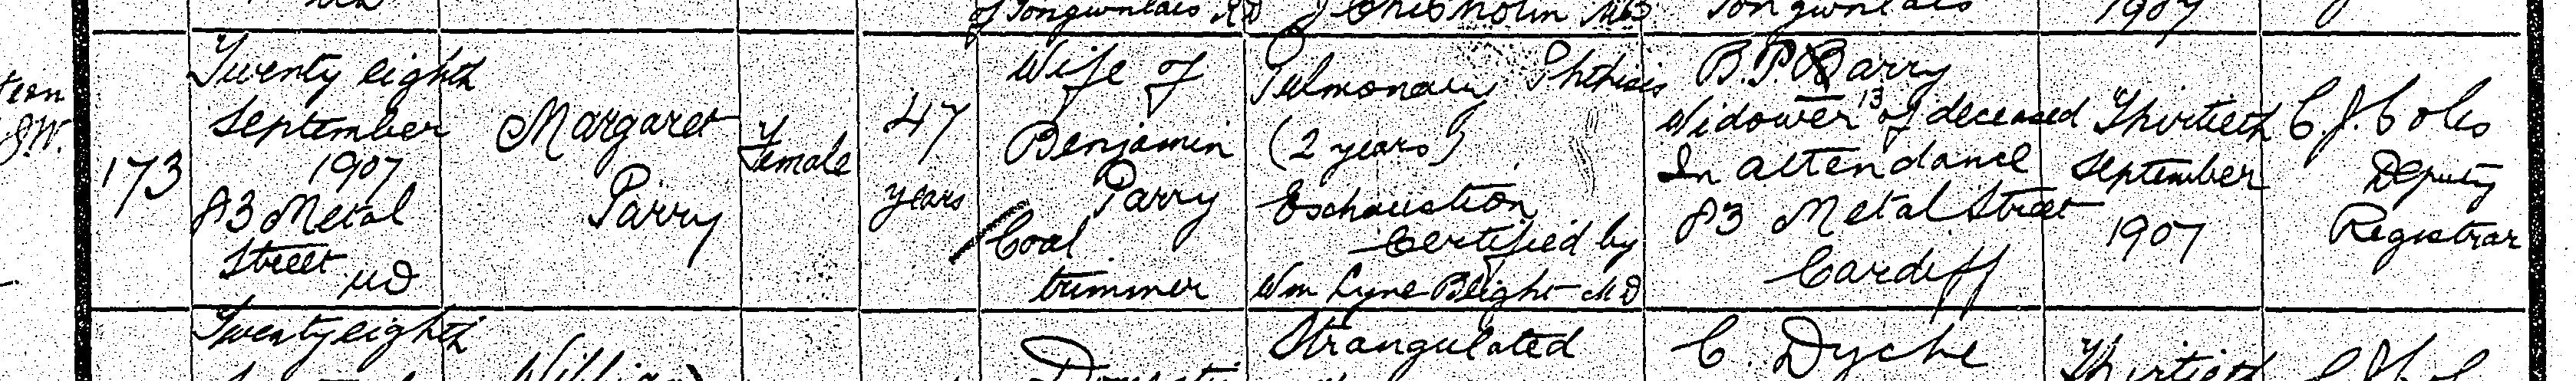 of Tongwnlais RD J Chisholm MB Tongwnlais 1907
173
Twenty eighth
September
1907
83 Metal
Street UD
Margaret
Parry
Female
47
years
Wife of
Benjamin
Parry
Coal
trimmer
Pulmonary Phthisis
(2 years)
Exhaustion
Certified by
Wm Lyne Blight MD
B.P. Parry
Widower 13 of deceased
In attendance
83 Metal Street
Cardiff
Thirtieth
September
1907
C. J. Coles
Deputy
Registrar
Twenty eighth
William
Domestic
Strangulated
C. Dyche
Thirtieth